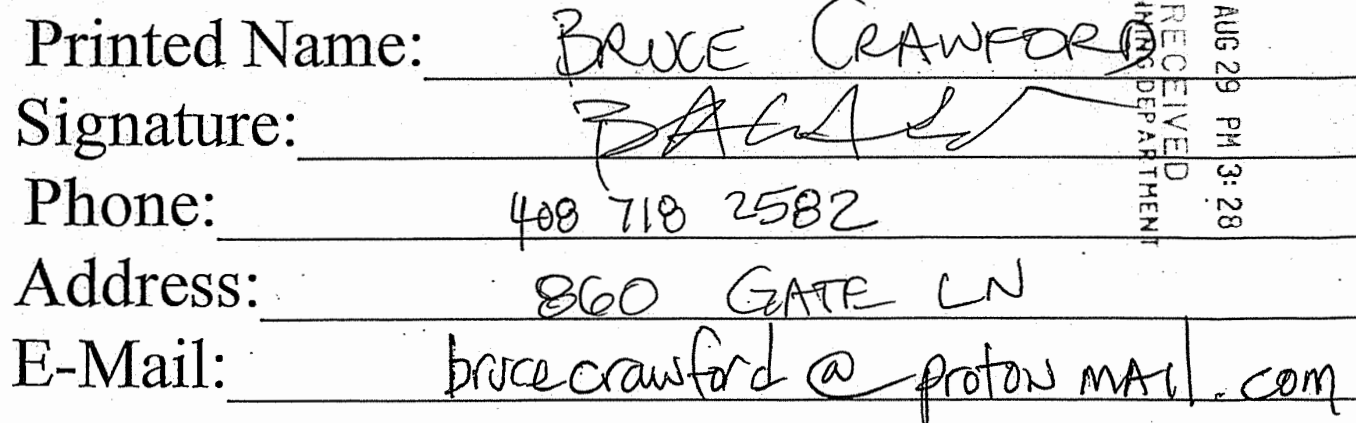 Printed Name: BRUCE CRAWFORD
Signature:
Phone: 408 718 2582
Address: 860 GATE LN
E-Mail: brucecrawford@protonmail.com
AUG 29 PM 3:28
RECEIVED
DEPARTMENT